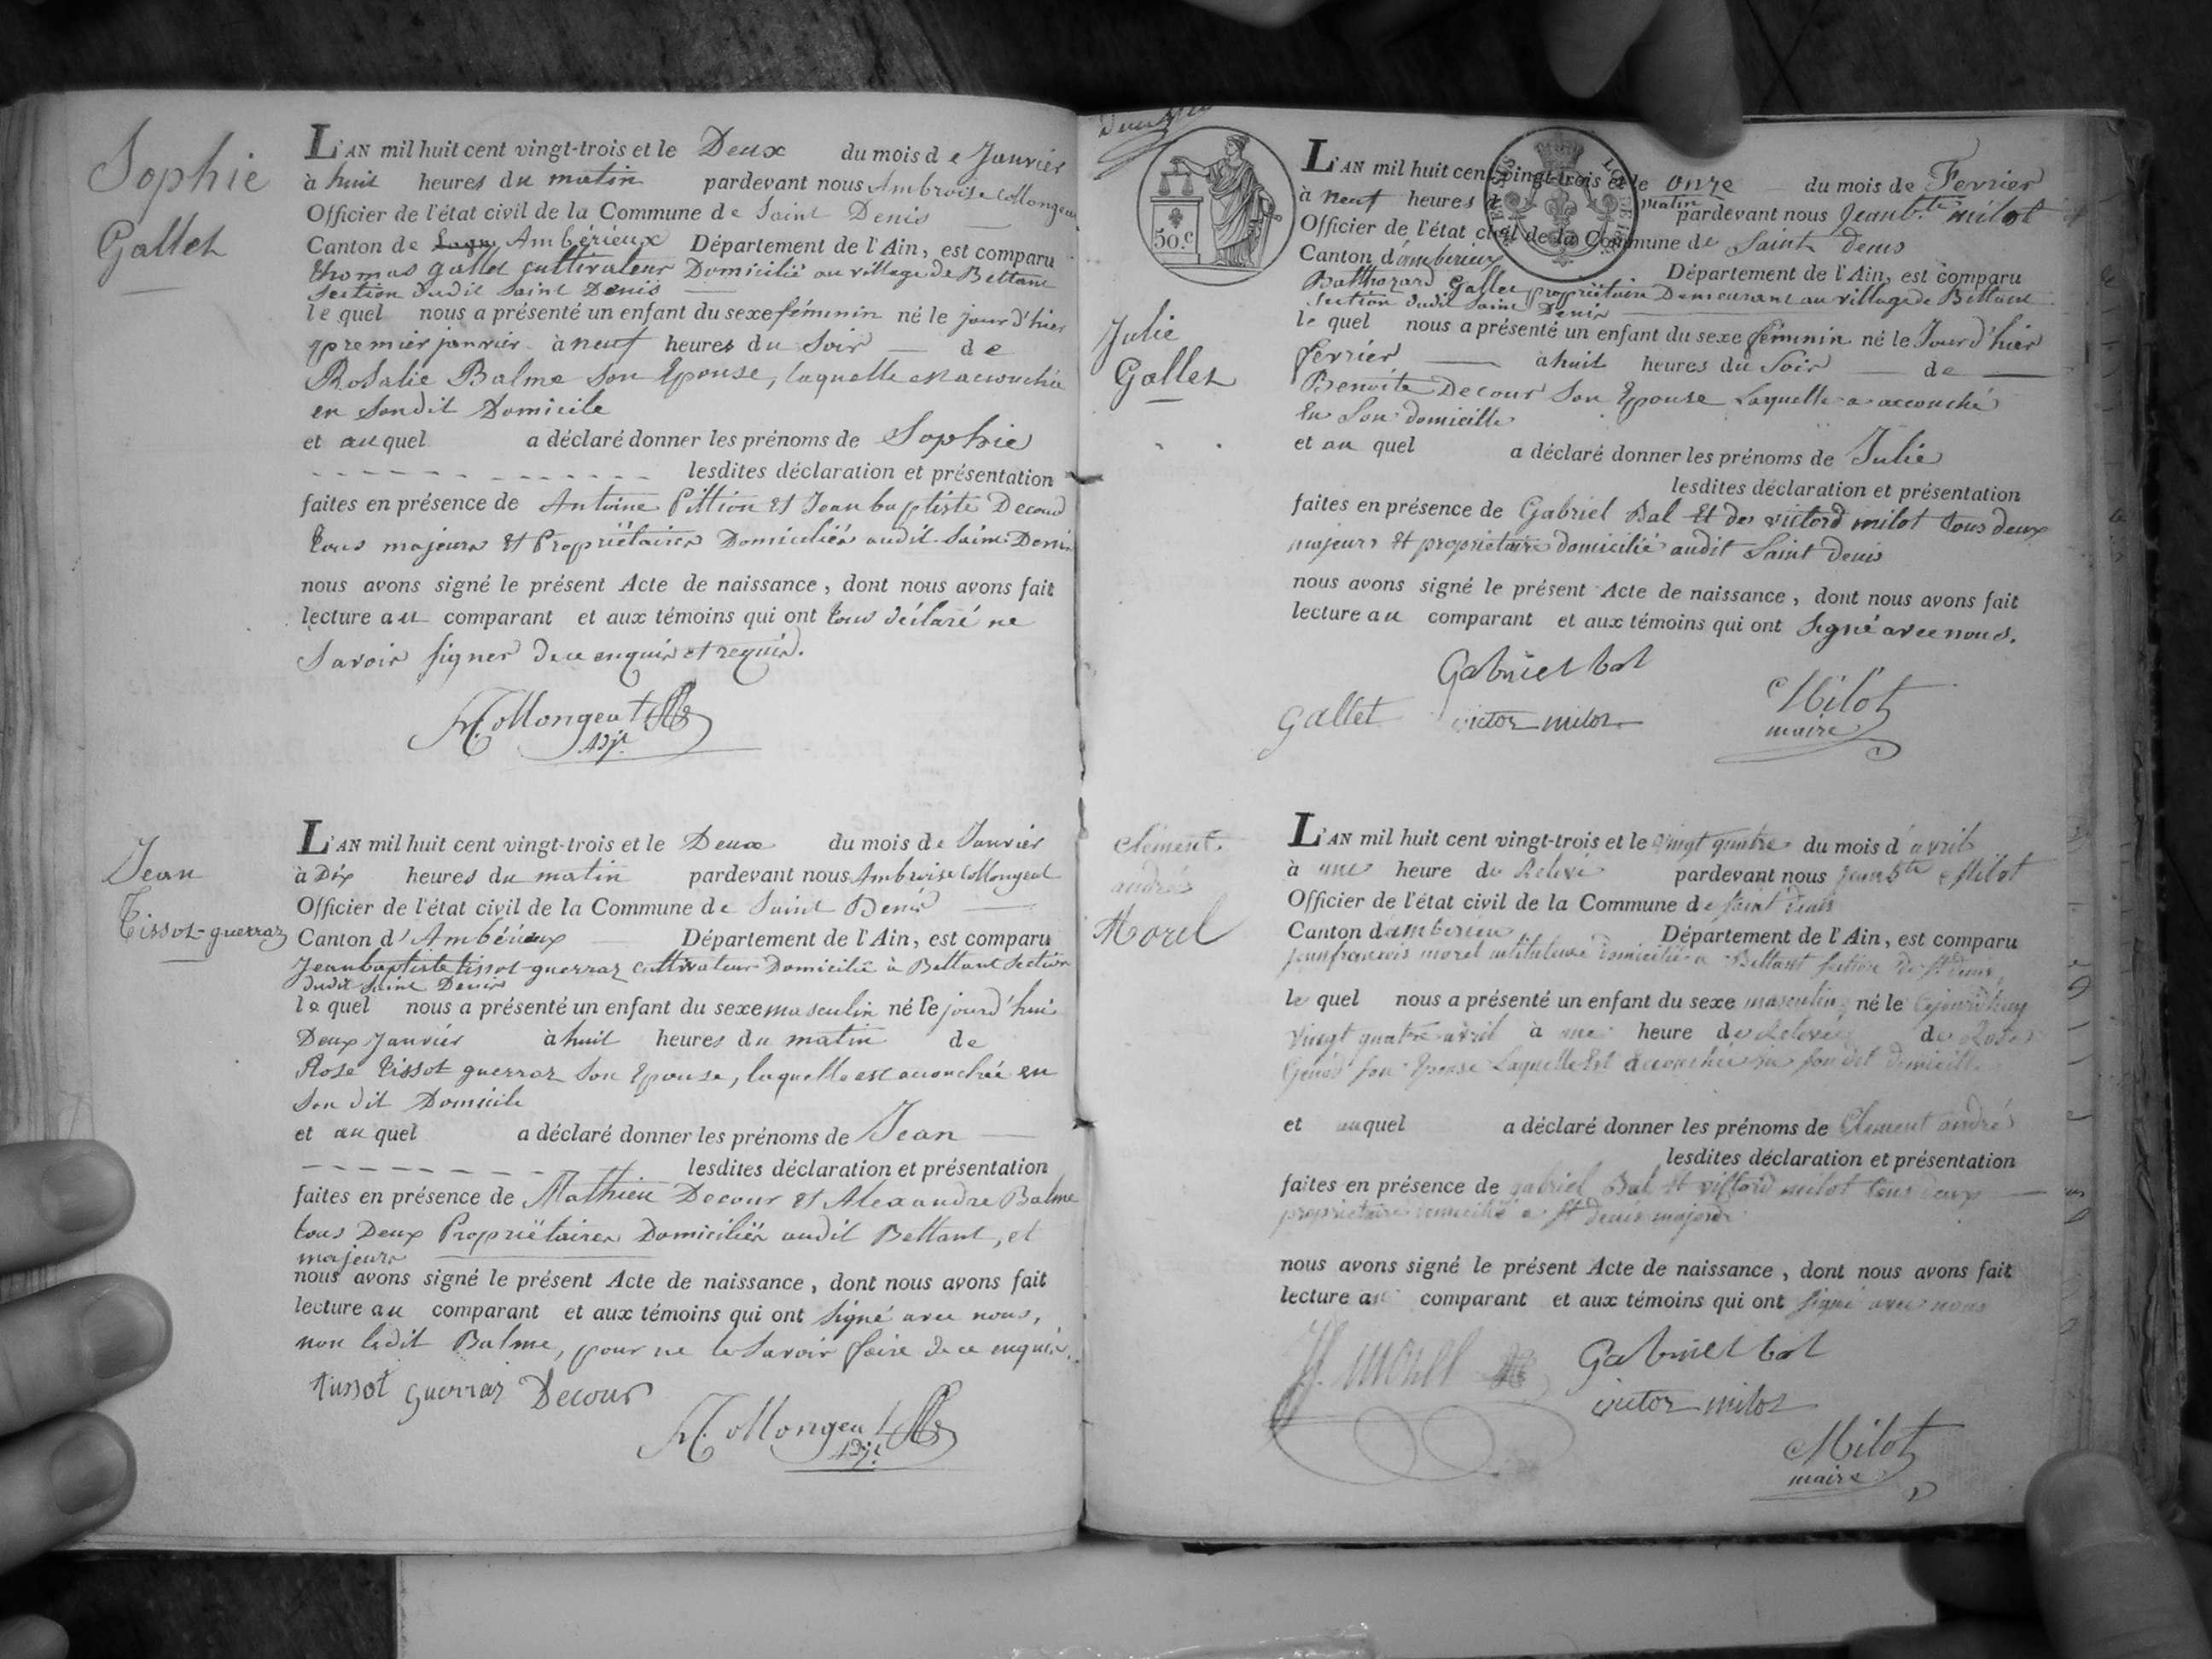 Sophie
Gallet
L'AN mil huit cent vingt-trois et le Deux du mois de Janvier
à huit heures du matin pardevant nous Ambroise Collongeat
Officier de l'état civil de la Commune de Saint Denis
Canton de Ambérieux Département de l'Ain, est comparu
thomas gallet cultivateur Domicilié au village de Bettant
section dudit Saint Denis
le quel nous a présenté un enfant du sexe féminin né le jour d'hier
premier janvier à neuf heures du Soir de
Rosalie Balme Son Epouse, laquelle est accouchée
en Sondit Domicile
et au quel a déclaré donner les prénoms de Sophie
lesdites déclaration et présentation
faites en présence de Antoine Pittion et Jean baptiste Decour
tous majeurs et Propriétaires Domiciliés audit Saint Denis
nous avons signé le présent Acte de naissance, dont nous avons fait
lecture au comparant et aux témoins qui ont tous déclaré ne
Savoir signer de ce enquis et requis.
A. Collongeat
adjt.
Jean
Tissot-guerraz
L'AN mil huit cent vingt-trois et le Deux du mois de Janvier
à Dix heures du matin pardevant nous Ambroise Collongeat
Officier de l'état civil de la Commune de Saint Denis
Canton d'Ambérieux Département de l'Ain, est comparu
Jean baptiste tissot-guerraz cultivateur Domicilié à Bettant Section
dudit Saint Denis
le quel nous a présenté un enfant du sexe masculin né le jourd'hui
Deux Janvier à huit heures du matin de
Rose Tissot guerraz Son Epouse, laquelle est accouchée en
Son dit Domicile
et au quel a déclaré donner les prénoms de Jean
lesdites déclaration et présentation
faites en présence de Mathieu Decour et Alexandre Balme
tous Deux Propriétaires Domiciliés audit Bettant, et
majeurs
nous avons signé le présent Acte de naissance, dont nous avons fait
lecture au comparant et aux témoins qui ont signé avec nous,
non ledit Balme, pour ne le Savoir faire de ce enquis.
tissot guerraz Decour
A. Collongeat
adjt.
50.c
Julie
Gallet
L'AN mil huit cent vingt-trois et le onze du mois de Fevrier
à neuf heures d matin pardevant nous Jean bte. milot
Officier de l'état civil de la Commune de Saint denis
Canton d'ambérieux Département de l'Ain, est comparu
Balthazard Gallet propriétaire Demeurant au village de Bettant
section dudit Saint Denis
le quel nous a présenté un enfant du sexe féminin né le Jour d'hier
fevrier à huit heures du Soir de
Benoite Decour Son Epouse Laquelle a accouché
En Son domicille
et au quel a déclaré donner les prénoms de Julie
lesdites déclaration et présentation
faites en présence de Gabriel Bal Et de victord milot tous deux
majeurs et proprietaire domicilié audit Saint denis
nous avons signé le présent Acte de naissance, dont nous avons fait
lecture au comparant et aux témoins qui ont Signé avec nous.
Gabriel bal
Gallet victor milot Milot
maire
Clément
andrés
Morel
L'AN mil huit cent vingt-trois et le vingt quatre du mois d'avril
à une heure de Relevé pardevant nous jean bte Milot
Officier de l'état civil de la Commune de saint denis
Canton d'amberieu Département de l'Ain, est comparu
jean francois morel domicilié a Bettant section de st denis
le quel nous a présenté un enfant du sexe masculin né le
vingt quatre avril à une heure de Relevé de Rose
son Epouse Laquelle Est accouchée en son dit domicille
et auquel a déclaré donner les prénoms de Clement andrés
lesdites déclaration et présentation
faites en présence de gabriel Bal et victord milot tous deux
proprietaire domicilié a st denis majeurs
nous avons signé le présent Acte de naissance, dont nous avons fait
lecture au comparant et aux témoins qui ont signé avec nous
Jf. morel Gabriel bal
victor milot
Milot
maire